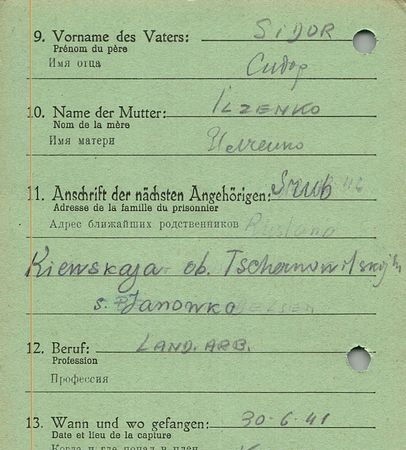 9. Vorname des Vaters: SIDOR
Prénom du père
Имя отца Сидор
10. Name der Mutter: ILZENKO
Nom de la mère
Имя матери Илченко
11. Anschrift der nächsten Angehörigen:
Adresse de la famille du prisonnier
Адрес ближайших родственников Rusland
Kiewskaja ob. Tschernowilskyj
s. Janowka
12. Beruf: LAND. ARB.
Profession
Профессия
13. Wann und wo gefangen: 30-6-41
Date et lieu de la capture
Когда и где попал в плен